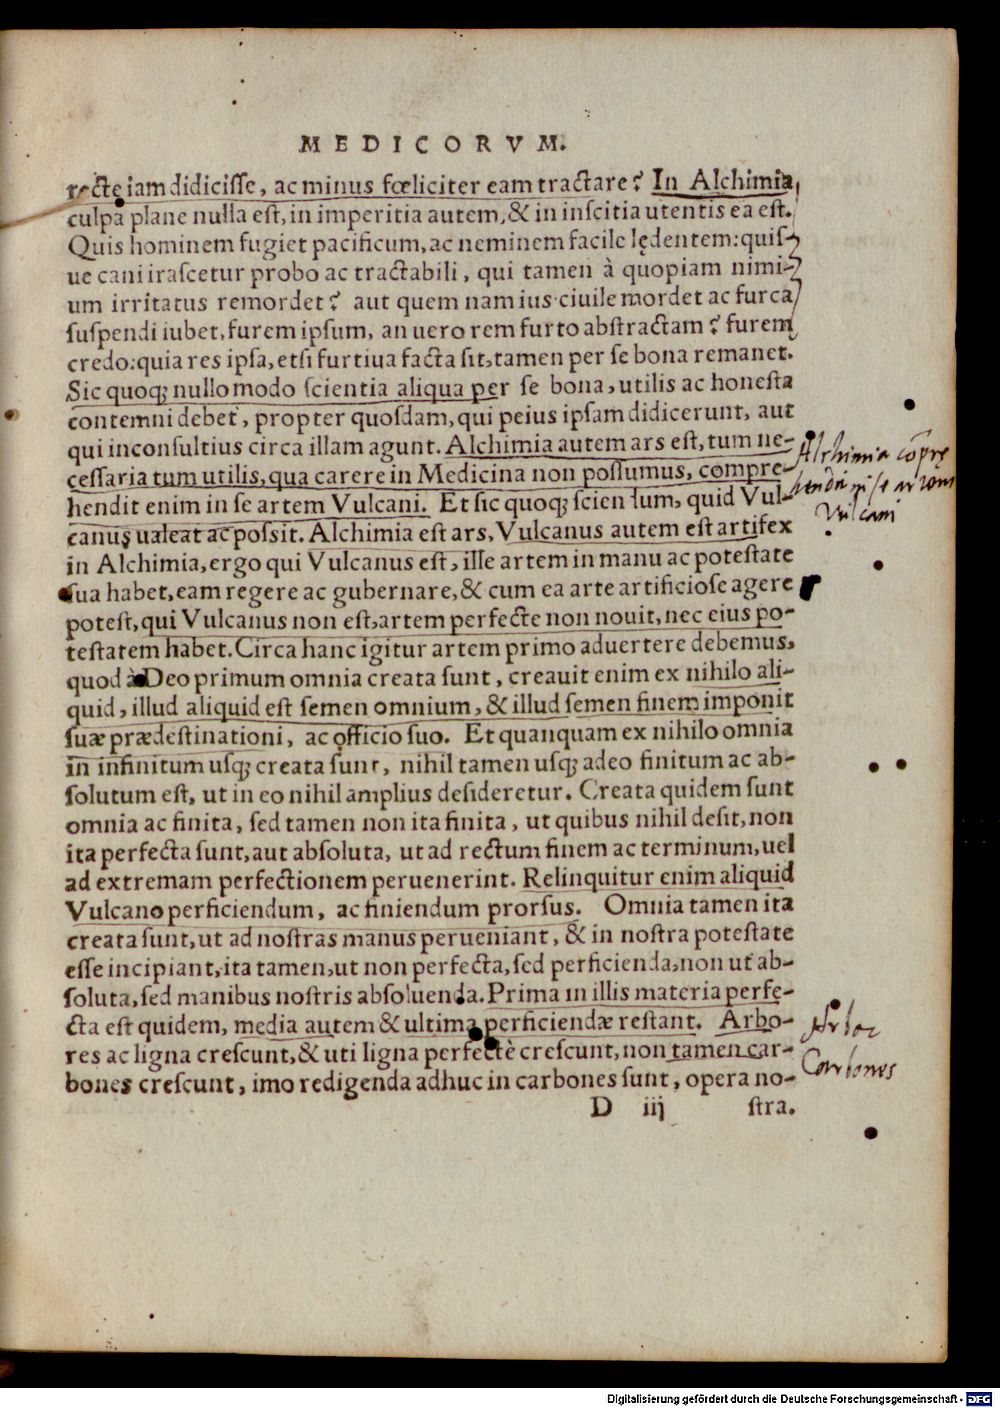 MEDICORVM.
recte iam didicisse, ac minus fœliciter eam tractare? In Alchimia
culpa plane nulla est, in imperitia autem, & in inscitia utentis ea est.
Quis hominem fugiet pacificum, ac neminem facile lędentem: quis-
ue cani irascetur probo ac tractabili, qui tamen à quopiam nimi-
um irritatus remordet? aut quem nam ius ciuile mordet ac furca
suspendi iubet, furem ipsum, an uero rem furto abstractam? furem
credo: quia res ipsa, etsi furtiua facta sit, tamen per se bona remanet.
Sic quoq; nullo modo scientia aliqua per se bona, utilis ac honesta
contemni debet, propter quosdam, qui peius ipsam didicerunt, aut
qui inconsultius circa illam agunt. Alchimia autem ars est, tum ne-
cessaria tum utilis, qua carere in Medicina non possumus, compre-
hendit enim in se artem Vulcani. Et sic quoq; scien dum, quid Vul-
canus ualeat ac possit. Alchimia est ars, Vulcanus autem est artifex
in Alchimia, ergo qui Vulcanus est, ille artem in manu ac potestate
sua habet, eam regere ac gubernare, & cum ea arte artificiose agere
potest, qui Vulcanus non est, artem perfecte non nouit, nec eius po-
testatem habet. Circa hanc igitur artem primo aduertere debemus,
quod à Deo primum omnia creata sunt, creauit enim ex nihilo ali-
quid, illud aliquid est semen omnium, & illud semen finem imponit
suæ prædestinationi, ac officio suo. Et quanquam ex nihilo omnia
in infinitum usq; creata sunt, nihil tamen usq; adeo finitum ac ab-
solutum est, ut in eo nihil amplius desideretur. Creata quidem sunt
omnia ac finita, sed tamen non ita finita, ut quibus nihil desit, non
ita perfecta sunt, aut absoluta, ut ad rectum finem ac terminum, uel
ad extremam perfectionem peruenerint. Relinquitur enim aliquid
Vulcano perficiendum, ac finiendum prorsus. Omnia tamen ita
creata sunt, ut ad nostras manus perueniant, & in nostra potestate
esse incipiant, ita tamen, ut non perfecta, sed perficienda, non ut ab-
soluta, sed manibus nostris absoluenda. Prima in illis materia perfe-
cta est quidem, media autem & ultima perficiendæ restant. Arbo-
res ac ligna crescunt, & uti ligna perfectè crescunt, non tamen car-
bones crescunt, imo redigenda adhuc in carbones sunt, opera no-
D iij stra.
Alchimia cōpre
Vulcani
Arbor
Carbones
Digitalisierung gefördert durch die Deutsche Forschungsgemeinschaft - DFG